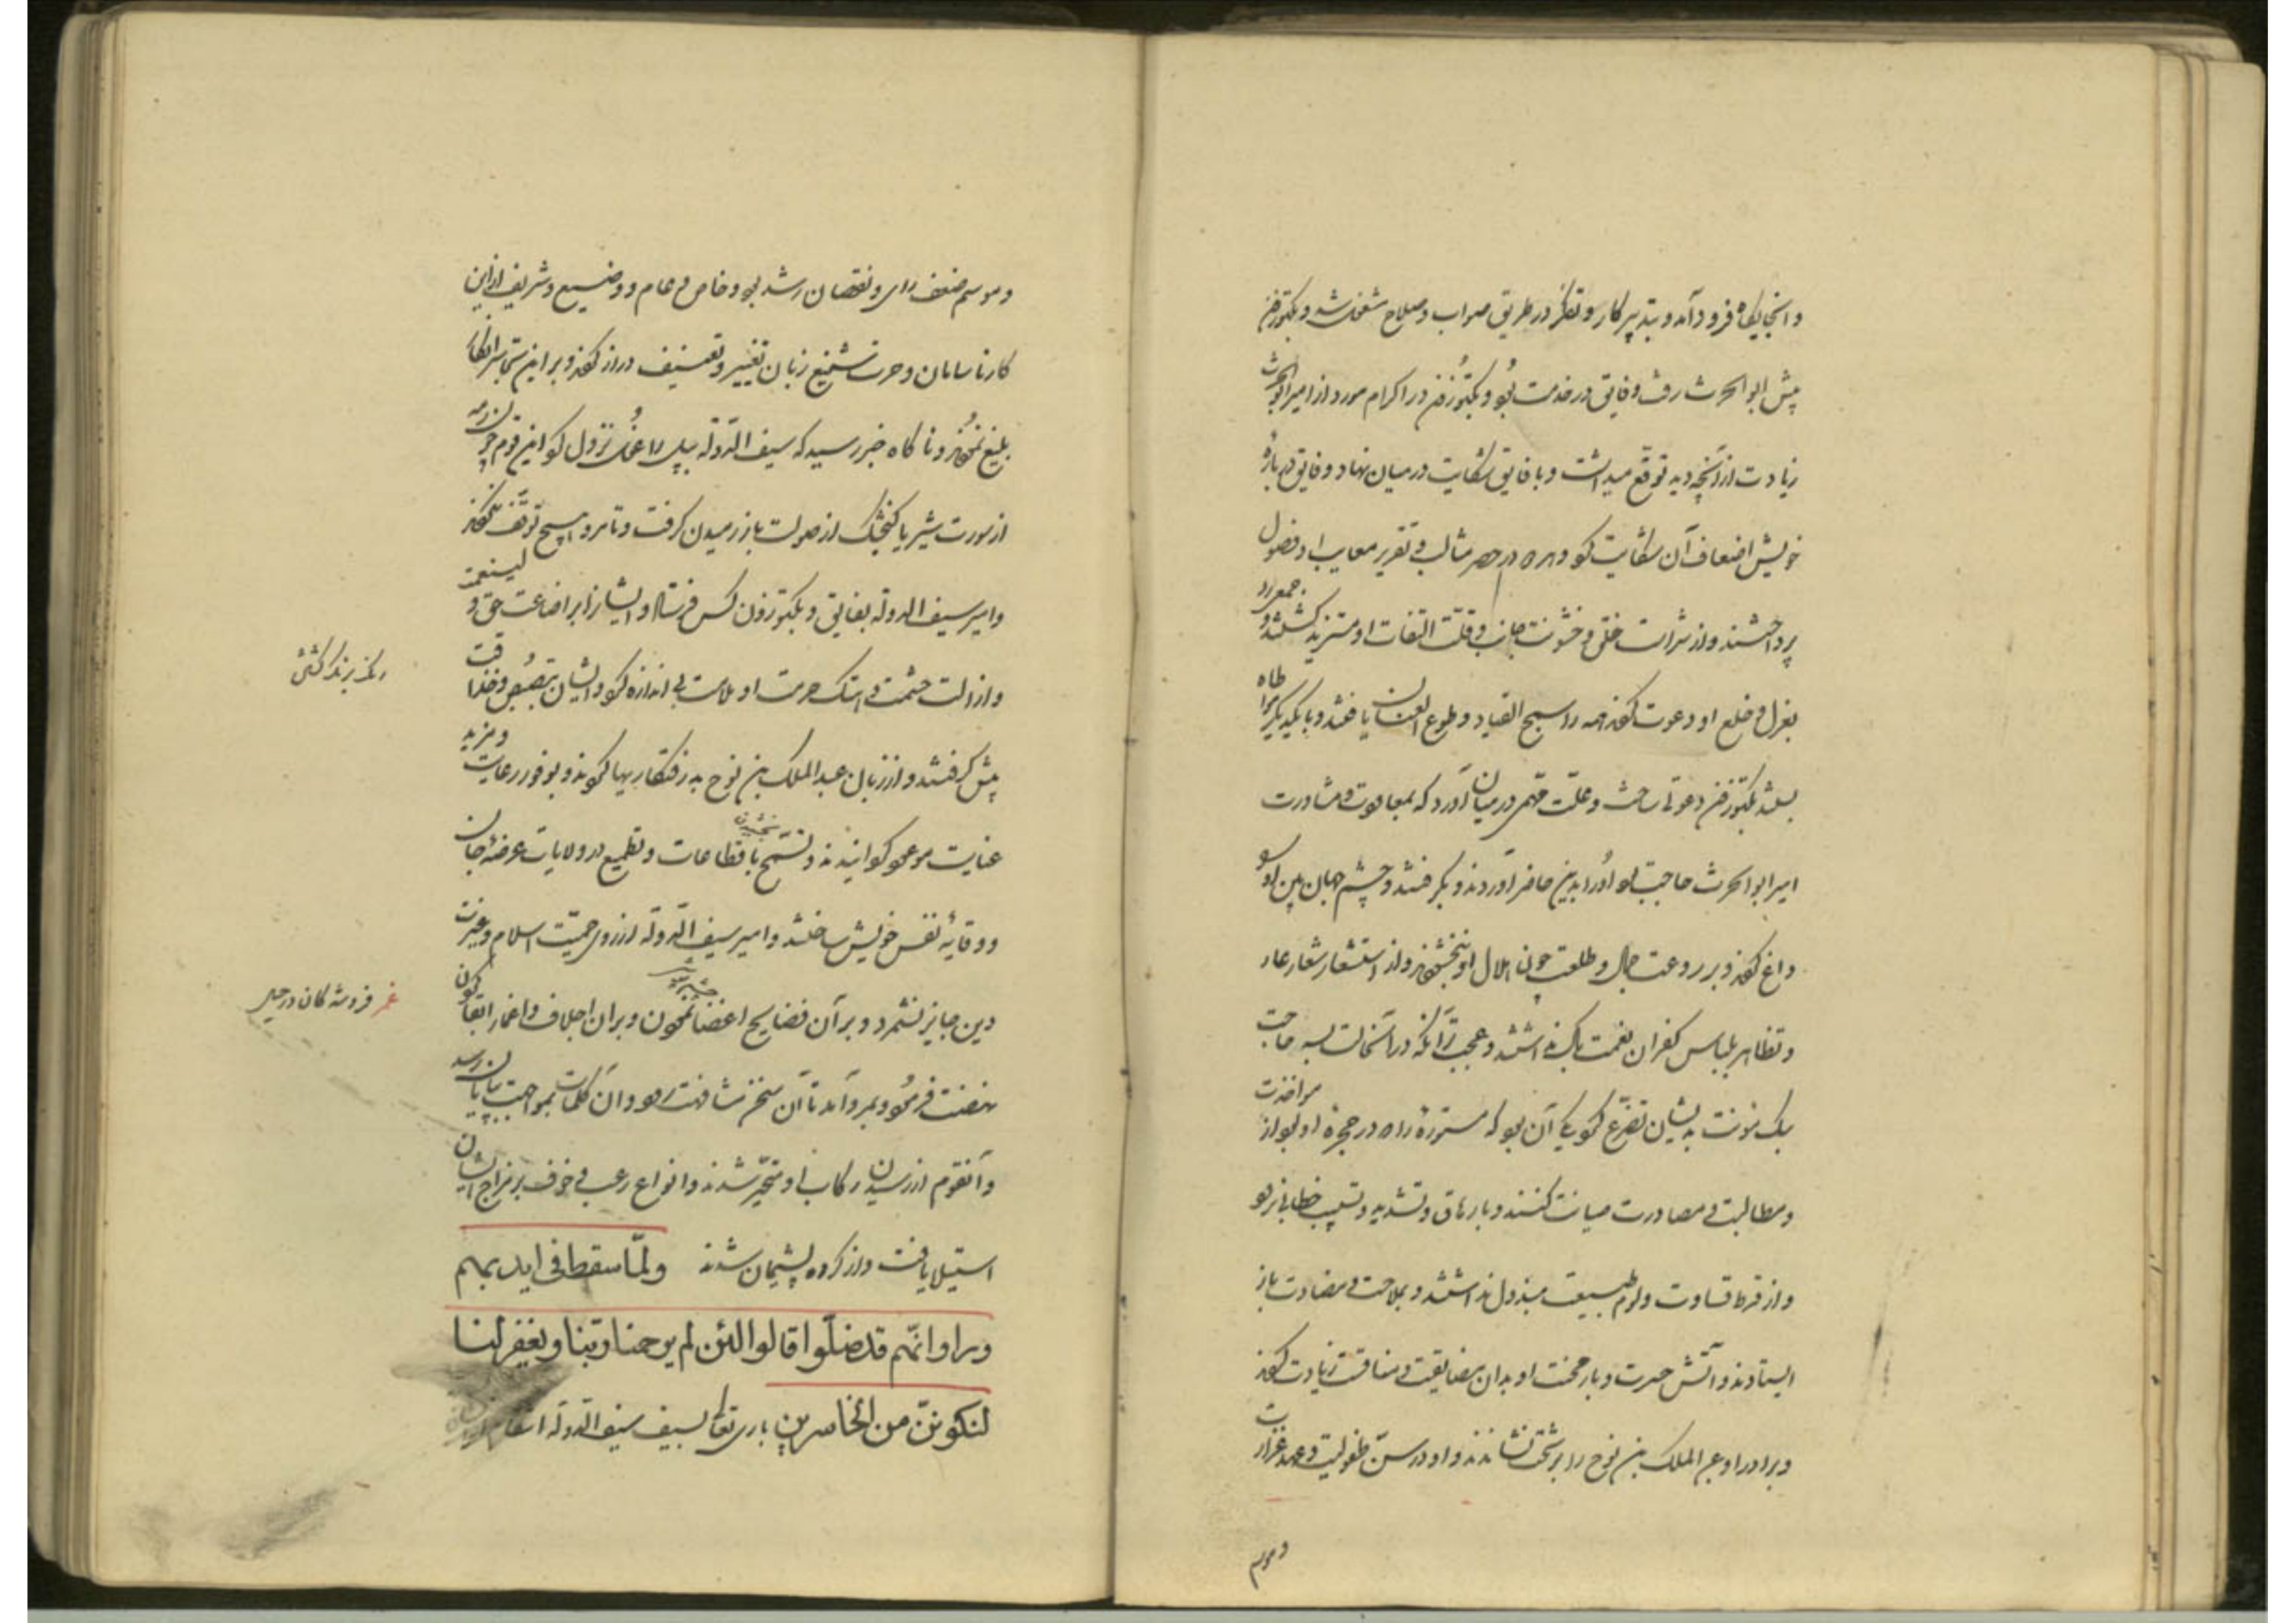 و آنجایگاه فرود آمد و بتدبیر کار و تفکر در طریق صواب و صلاح مشغول شد و بکتوزن
پیش ابو الحرث رفت و فایق در خدمت بود و بکتوزن در اکرام مورد از امیر ابو الحرث
زیادت از آنچه دید توقع میداشت و با فایق شکایت در میان نهاد و فایق در باره
خویش اضعاف آن شکایت کرد و هر دو در حصر مثالب و تقریر معایب او فصول
پرداختند و از شراست خلق و خشونت جانب و قلت التفات او مستزید گشتند و جمعی را
بعزل و خلع او دعوت کردند همه را سمح القیاد و طوع العنان یافتند و با یکدیگر براطاه
بکتوزن دعوتی ساخت و علت مهمی در میان آورد که بمعاونت و مشاورت
امیر ابو الحرث حاجت بود او را بدین حاضر آوردند و بگرفتند و چشم جهان بین او بسو
داغ کردند و بر روعت جمال و طلعت چون هلال او نبخشودند و از استشعار شعار عار
و تظاهر بلباس کفران نعمت باک نداشتند و عجب تر آنکه در آنحالت بسه حاجت
سبک مونت بدیشان تضرع نمود یکی آن بود که مستوره را که در حجره او بود از مواخذت
و مطالبت و مصادرت صیانت کنند و بارهاق و تشدید و تسبیب خطابی نرود
و از فرط قساوت و لوم طبیعت مبذول نداشتند و بملاحت و مضادت باز
ایستادند و آتش حسرت و بار محنت او بدان مضایقت و منافست زیادت کردند
و برادر او عبد الملک بن نوح را بر تخت نشاندند و او در سن طفولیت و عهد غرارت
و موسم
و موسم ضعف رای و نقصان رشد بود و خاص و عام و وضیع و شریف از این
کار ناسامان و حرکت شنیع زبان تغییر و تعنیف دراز کردند و بر این تجاسر انکار
بلیغ نمودند و ناگاه خبر رسید که سیف الدوله بپل زاغول نزول کرد این قوم چون رمه
از سورت شیر یا کنجشک از صولت باز رمیدن گرفت و تا مرو هیچ توقف نکردند
و امیر سیف الدوله بفایق و بکتوزون کس فرستاد و ایشانرا بر اضاعت حق ولینعمت
و ازالت حشمت و هتک حرمت او ملامت بی اندازه کرد و ایشان تبصبص و خداقت
پیش گرفتند و از زبان عبد الملک بن نوح بدر فتکاریها نمودند و بوفور رعایت و مزید
عنایت موعود گردانیدند و تسمح باقطاعات و تطمیع در ولایات عرضه جان
بخشیدن
و وقایه نفس خویش ساختند و امیر سیف الدوله از روی حمیت اسلام و غیرت
دین جایز نشمرد و بر آن فضایح اغضا نمودن و بر آن اجلاف و اغمار ابقا کردن
چشم پوشیدن
نهضت فرمود و بمرو آمد تا آن سخن مشافهت رود و آن کلمات بمواجهت بپایان رسد
و آنقوم از رسیدن رکاب او متحیر شدند و انواع رعب و خوف بر مزاج ایشان
استیلا یافت و از کرده پشیمان شدند ولمّا سقط فی ایدیهم
وراوا انّهم قد ضلّوا قالوا لئن لم یرحمنا ربّنا ویغفر لنا
لنکوننّ من الخاسرین باری تعالی بسیف سیف الدوله انتقام